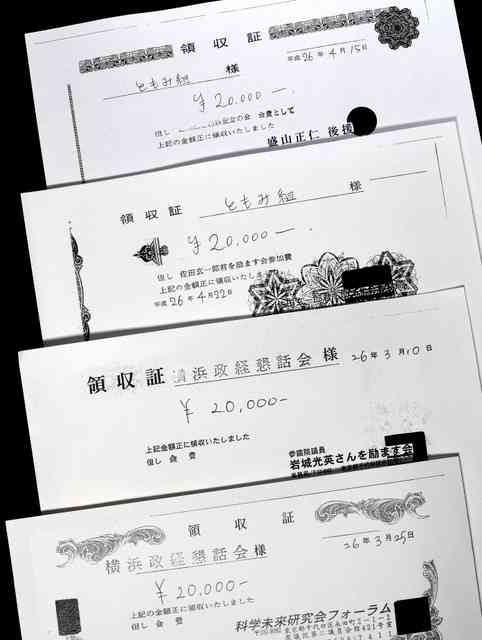 領収証
平成 26 年 4 月 15日
ともみ組 様
¥ 20.000 —.
但し 記念の会 会費として
上記の金額正に領収いたしました
盛山正仁 後援
領収証 ともみ組 様
¥ 20.000 —.
但し 佐田玄一郎君を励ます会参加費
上記の金額正に領収いたしま
平成 26 年 4 月22日
領収証 横浜政経懇話会様 26 年 3 月10 日
¥ 20,000-
上記金額正に領収いたしました
但し 会 費
参議院議員
岩城光英さんを励ます会
領収証
横浜政経懇話会様
26 年 3 月 25日
¥20,000-
但し 会 費
上記の金額正に領収いたしました
科学未来研究会フォーラム
東京都千代田区永田町2-1-1